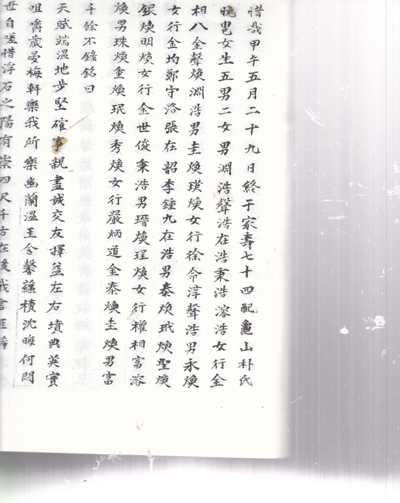 惜哉甲午五月二十九日終于家壽七十四配龜山朴氏
晩邕女生五男二女男淵浩聲浩在浩秉浩溶浩女行金
相八金聲煥淵浩男圭煥瑛煥女行徐命淳聲浩男永煥
女行金均鄭守洛張在韶李鍾九在浩男泰煥玳煥聖煥
銀煥明煥女行全世俊秉浩男瑨煥珵煥女行權相富溶
煥男珠煥重煥珉煥秀煥女行嚴炳道金泰煥圭煥男富
千餘不錄銘曰
天賦端溫地步堅確事親盡誠交友擇益左右墳典英實
咀嚼歲晏梅軒樂我所樂幽蘭溫王今馨蘊櫝沈晦何悶
世自譏惜浮石之陽有崇四尺千古在後我言